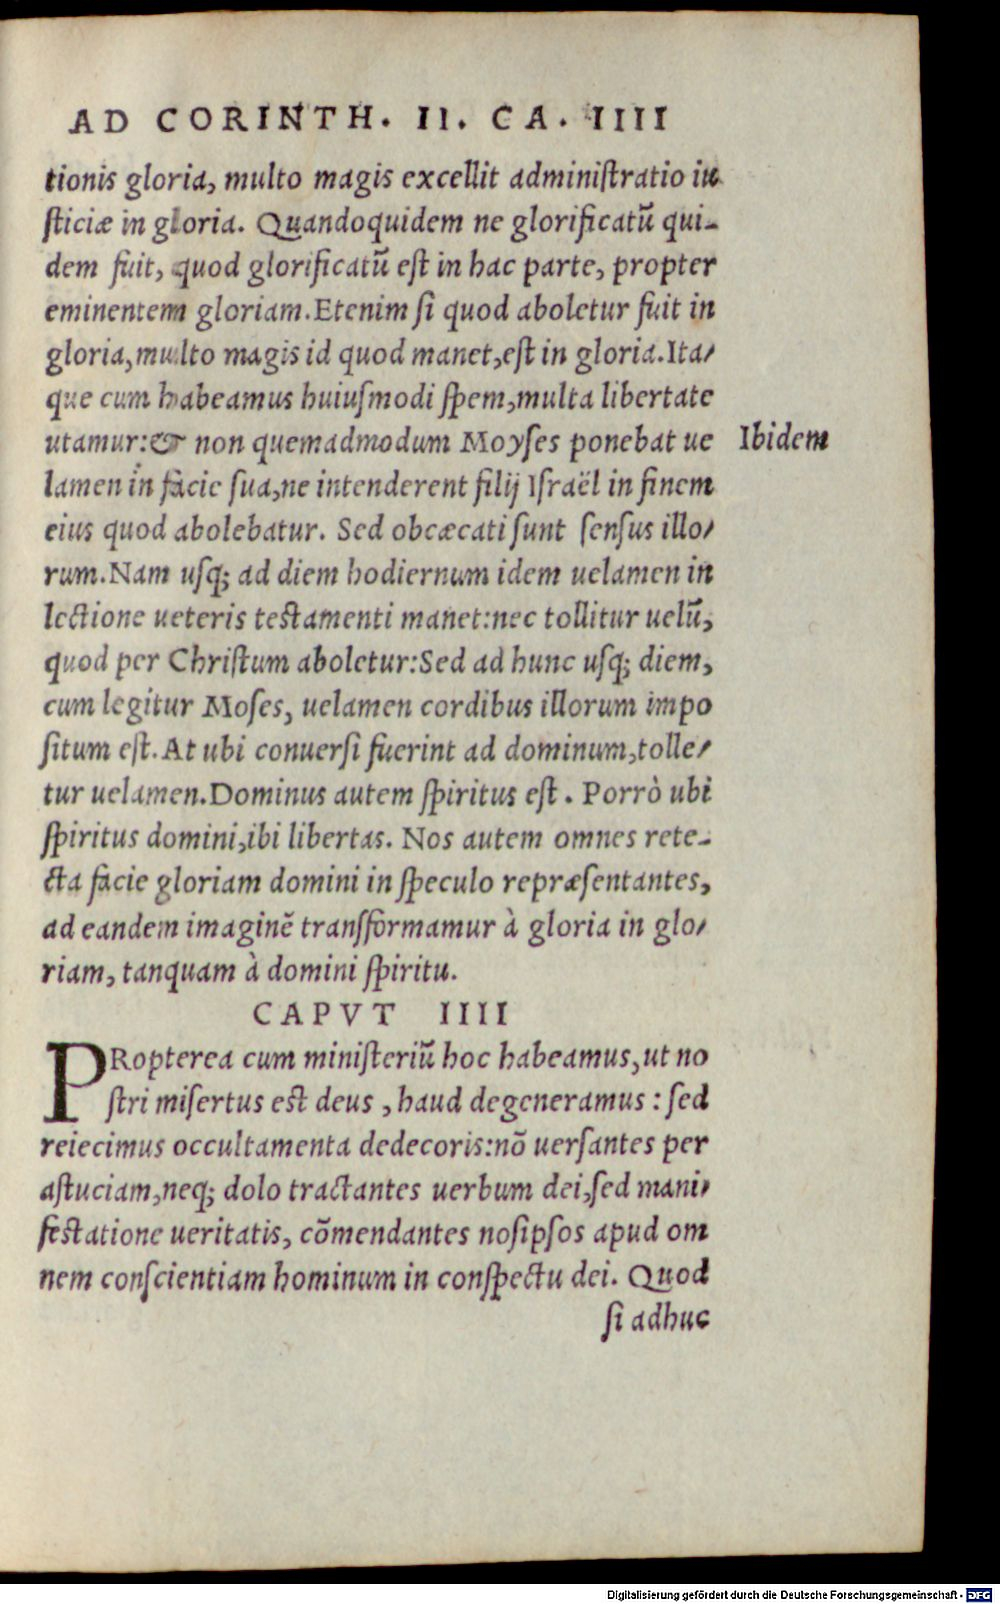 AD CORINTH. II. CA. IIII
tionis gloria, multo magis excellit administratio iu
sticiæ in gloria. Quandoquidem ne glorificatū qui-
dem fuit, quod glorificatū est in hac parte, propter
eminentem gloriam.Etenim si quod aboletur fuit in
gloria,multo magis id quod manet,est in gloria.Ita/
que cum habeamus huiusmodi spem,multa libertate
utamur:& non quemadmodum Moyses ponebat ue
Ibidem
lamen in facie sua,ne intenderent filij Israël in finem
eius quod abolebatur. Sed obcæcati sunt sensus illo/
rum.Nam usq; ad diem hodiernum idem uelamen in
lectione ueteris testamenti manet:nec tollitur uelū,
quod per Christum aboletur:Sed ad hunc usq; diem,
cum legitur Moses, uelamen cordibus illorum impo
situm est. At ubi conuersi fuerint ad dominum,tolle/
tur uelamen.Dominus autem spiritus est . Porrò ubi
spiritus domini,ibi libertas. Nos autem omnes rete-
cta facie gloriam domini in speculo repræsentantes,
ad eandem imaginē transformamur à gloria in glo/
riam, tanquam à domini spiritu.
CAPVT IIII
PRopterea cum ministeriū hoc habeamus,ut no
stri misertus est deus , haud degeneramus : sed
reiecimus occultamenta dedecoris:nō uersantes per
astuciam,neq; dolo tractantes uerbum dei,sed mani/
festatione ueritatis, cōmendantes nosipsos apud om
nem conscientiam hominum in conspectu dei. Quod
si adhuc
Digitalisierung gefördert durch die Deutsche Forschungsgemeinschaft - DFG